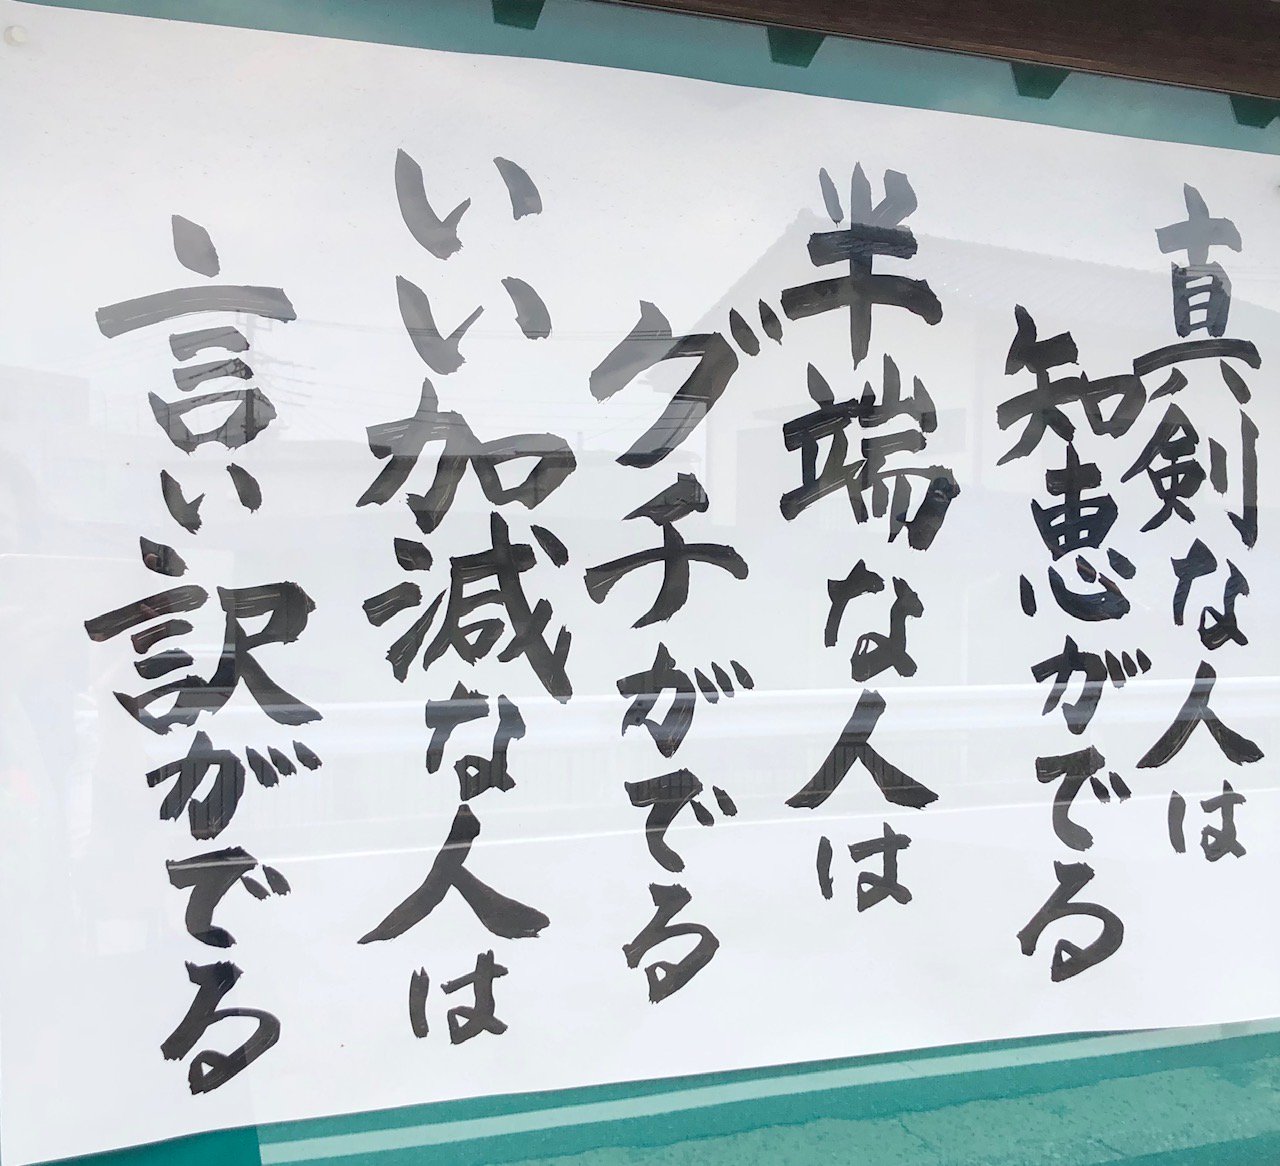 真剣な人は
知恵がでる
半端な人は
グチがでる
いい加減な人は
言い訳がでる